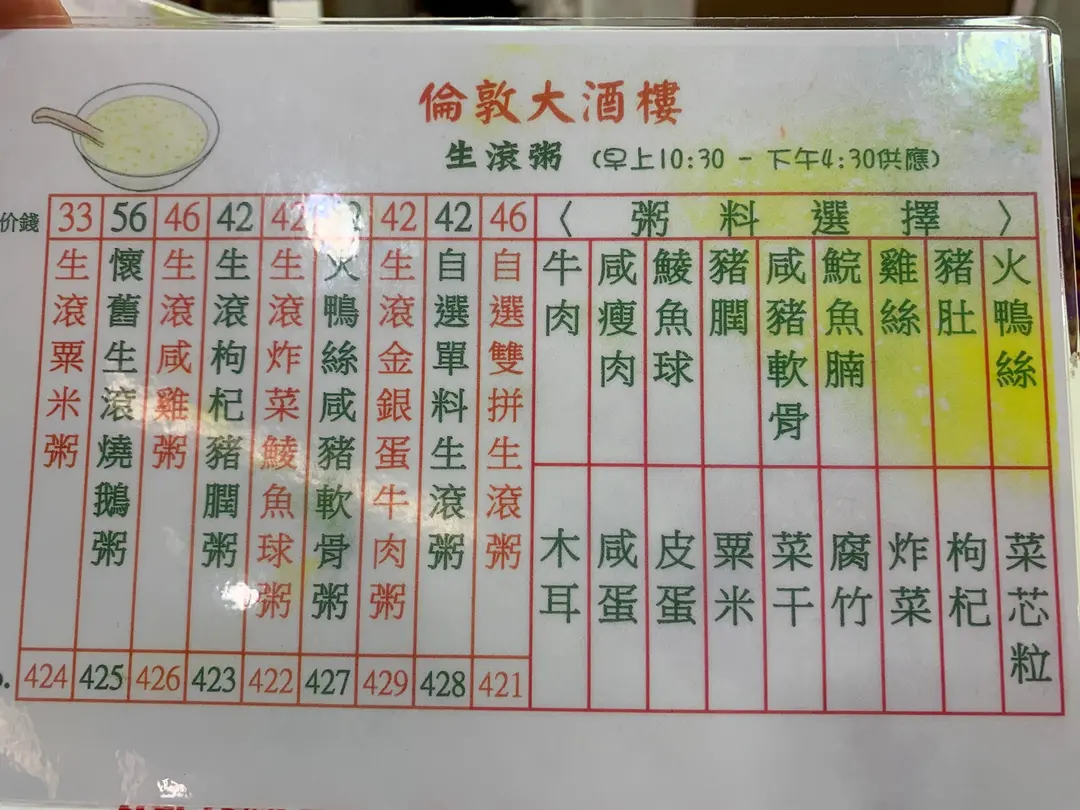 倫敦大酒樓
生滾粥 (早上10:30 - 下午4:30供應)
价錢 33 56 46 42 42 42 42 46
〈 粥料選擇 〉
生滾粟米粥
懷舊生滾燒鵝粥
生滾咸雞粥
生滾枸杞豬膶粥
生滾炸菜鯪魚球粥
火鴨絲咸豬軟骨粥
生滾金銀蛋牛肉粥
自選單料生滾粥
自選雙拼生滾粥
424 425 426 423 422 427 429 428 421
牛肉
咸瘦肉
鯪魚球
豬膶
咸豬軟骨
鯇魚腩
雞絲
豬肚
火鴨絲
木耳
咸蛋
皮蛋
粟米
菜干
腐竹
炸菜
枸杞
菜芯粒